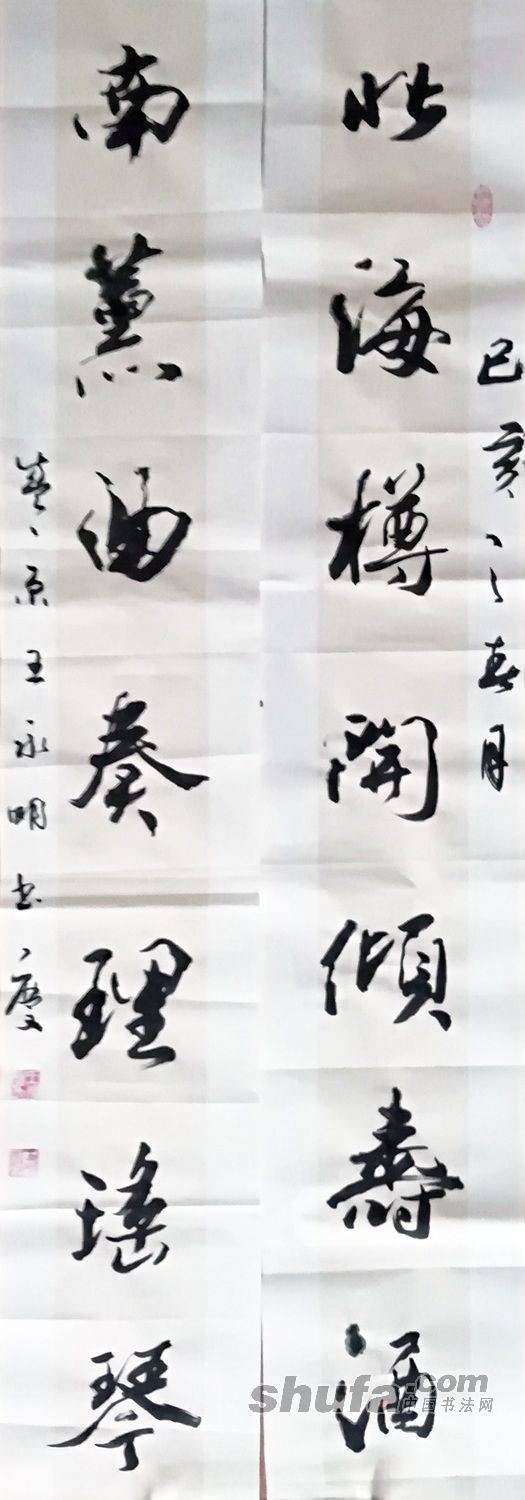 己亥之春月
北海樽開傾壽酒
南薰曲奏理瑤琴
原王永明书
shufa.com
中国书法网